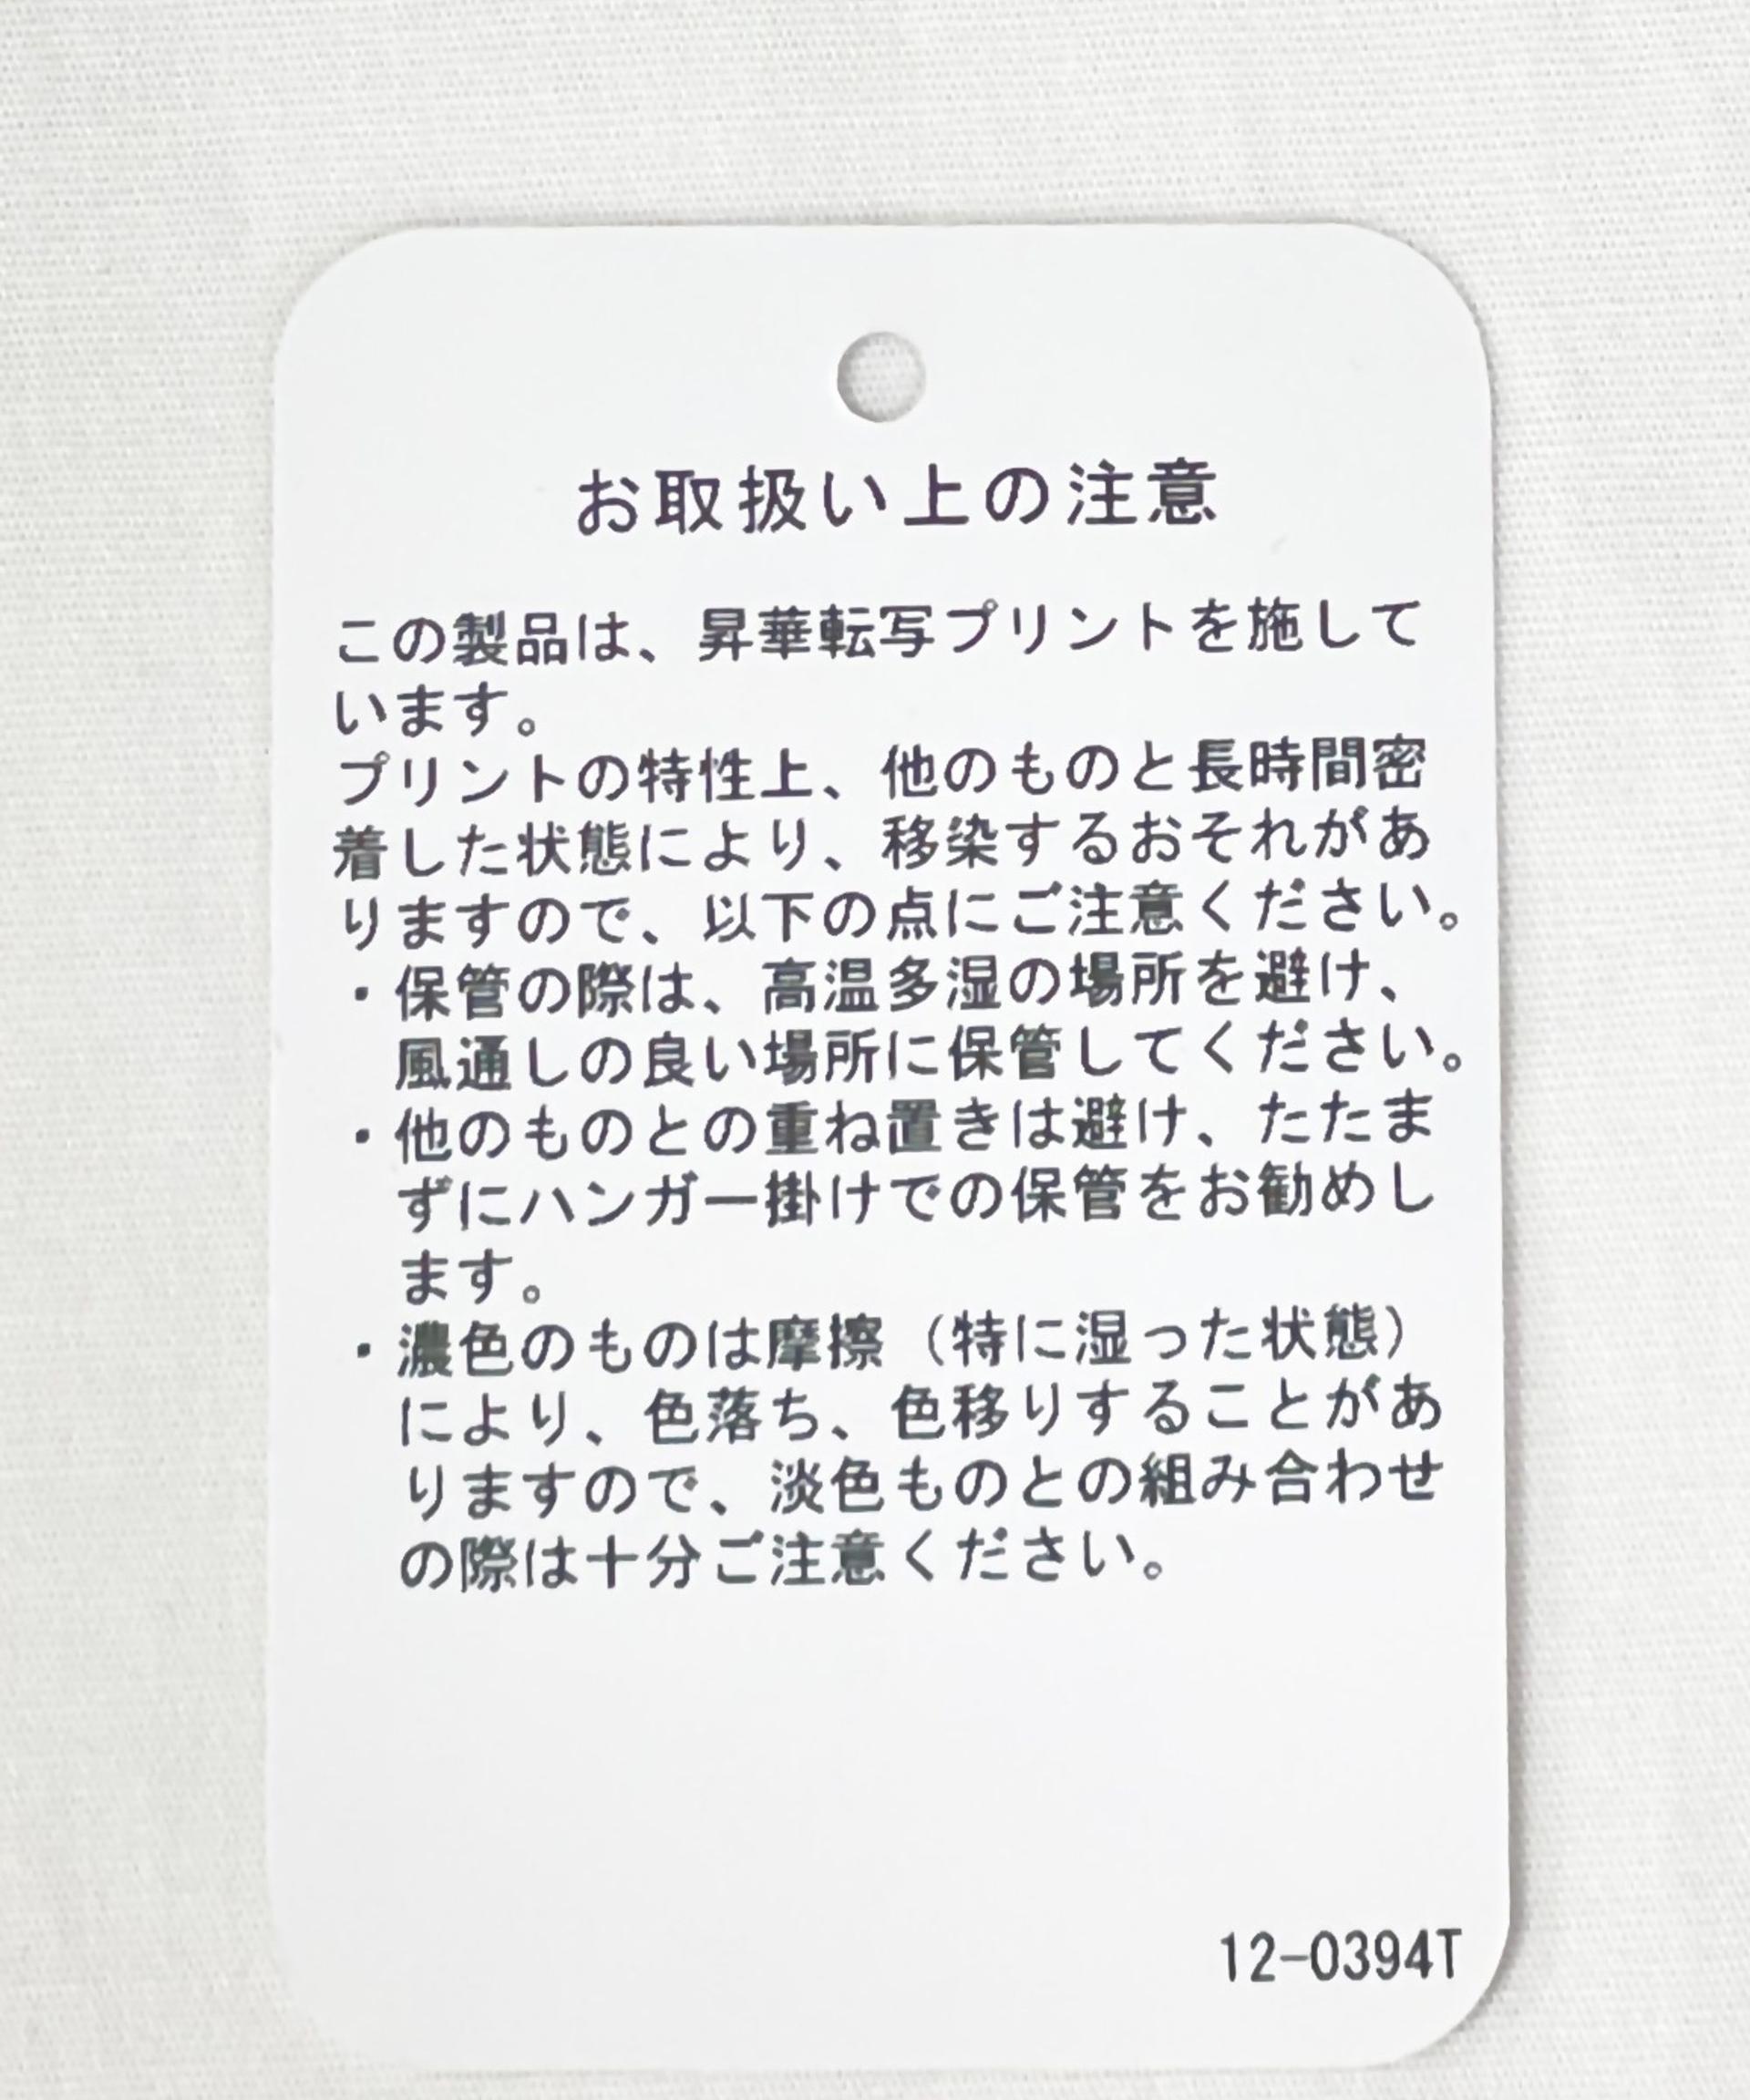 お取扱い上の注意
この製品は、昇華転写プリントを施して
います。
プリントの特性上、他のものと長時間密
着した状態により、移染するおそれがあ
りますので、以下の点にご注意ください。
・保管の際は、高温多湿の場所を避け、
風通しの良い場所に保管してください。
・他のものとの重ね置きは避け、たたま
ずにハンガー掛けでの保管をお勧めし
ます。
・濃色のものは摩擦（特に湿った状態）
により、色落ち、色移りすることがあ
りますので、淡色ものとの組み合わせ
の際は十分ご注意ください。
12-0394T